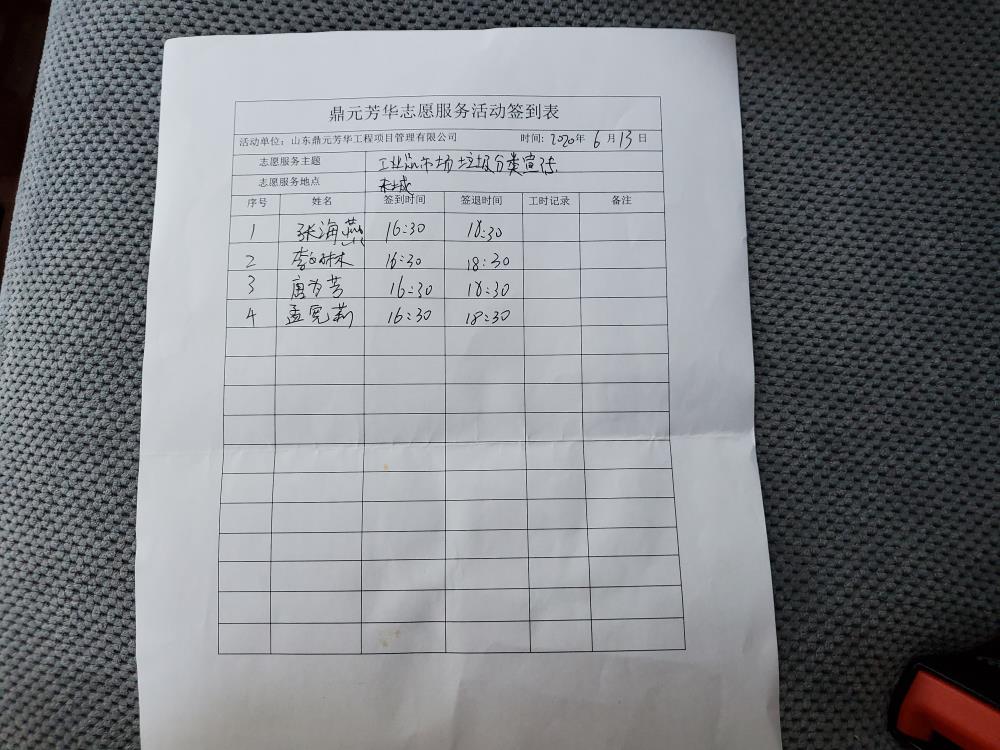 鼎元芳华志愿服务活动签到表
活动单位：山东鼎元芳华工程项目管理有限公司 时间: 2020年 6月13日
志愿服务主题 工业品市场垃圾分类宣传
志愿服务地点
序号 姓名 签到时间 签退时间 工时记录 备注
1 张海燕 16:30 18:30
2 李 林 16:30 18:30
3 唐 芳 16:30 18:30
4 孟宪莉 16:30 18:30